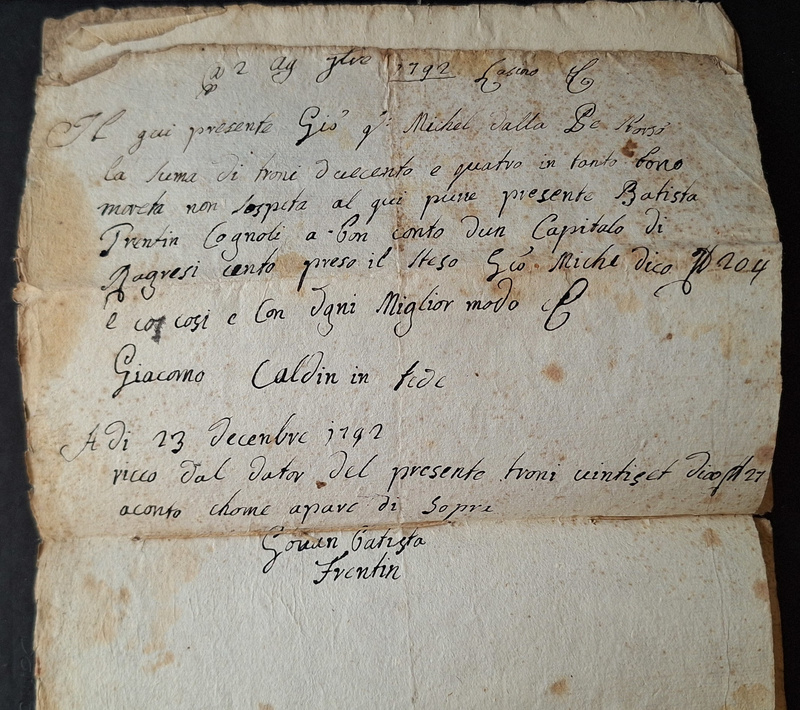 2 1792
Il qui presente Gio q: Michel dalla Pe
la suma di troni duecento e quatro in tanto bono
moneta non sospeta al qui pure presente Batista
Trentin Cognoli a bon conto dun Capitalo di
cento preso il steso Gio Miche dico 204
e cosi e Con ogni Miglior modo
Giacomo Caldin in fede
A di 23 decenbre 1792
dal dator del presente troni dico 27
aconto chome apare di Sopra
Govan batista
Trentin